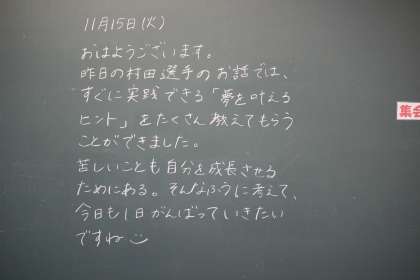 11月15日(火)
おはようございます。
昨日の村田選手のお話では、
すぐに実践できる「夢を叶える
ヒント」をたくさん教えてもらう
ことができました。
苦しいことも自分を成長させる
ためにある。そんなふうに考えて、
今日も1日がんばっていきたい
ですね
集会